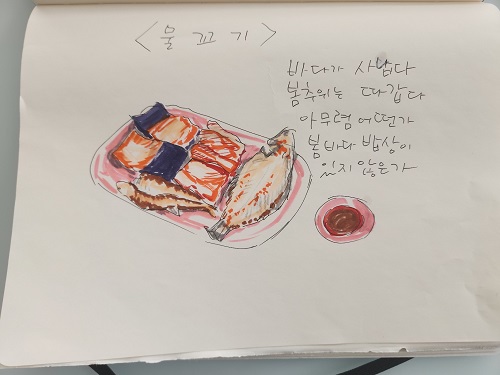 <물꼬기>
바다가 사납다
봄추위는 따갑다
아무렴 어떤가
봄바다 밥상이
있지 않은가